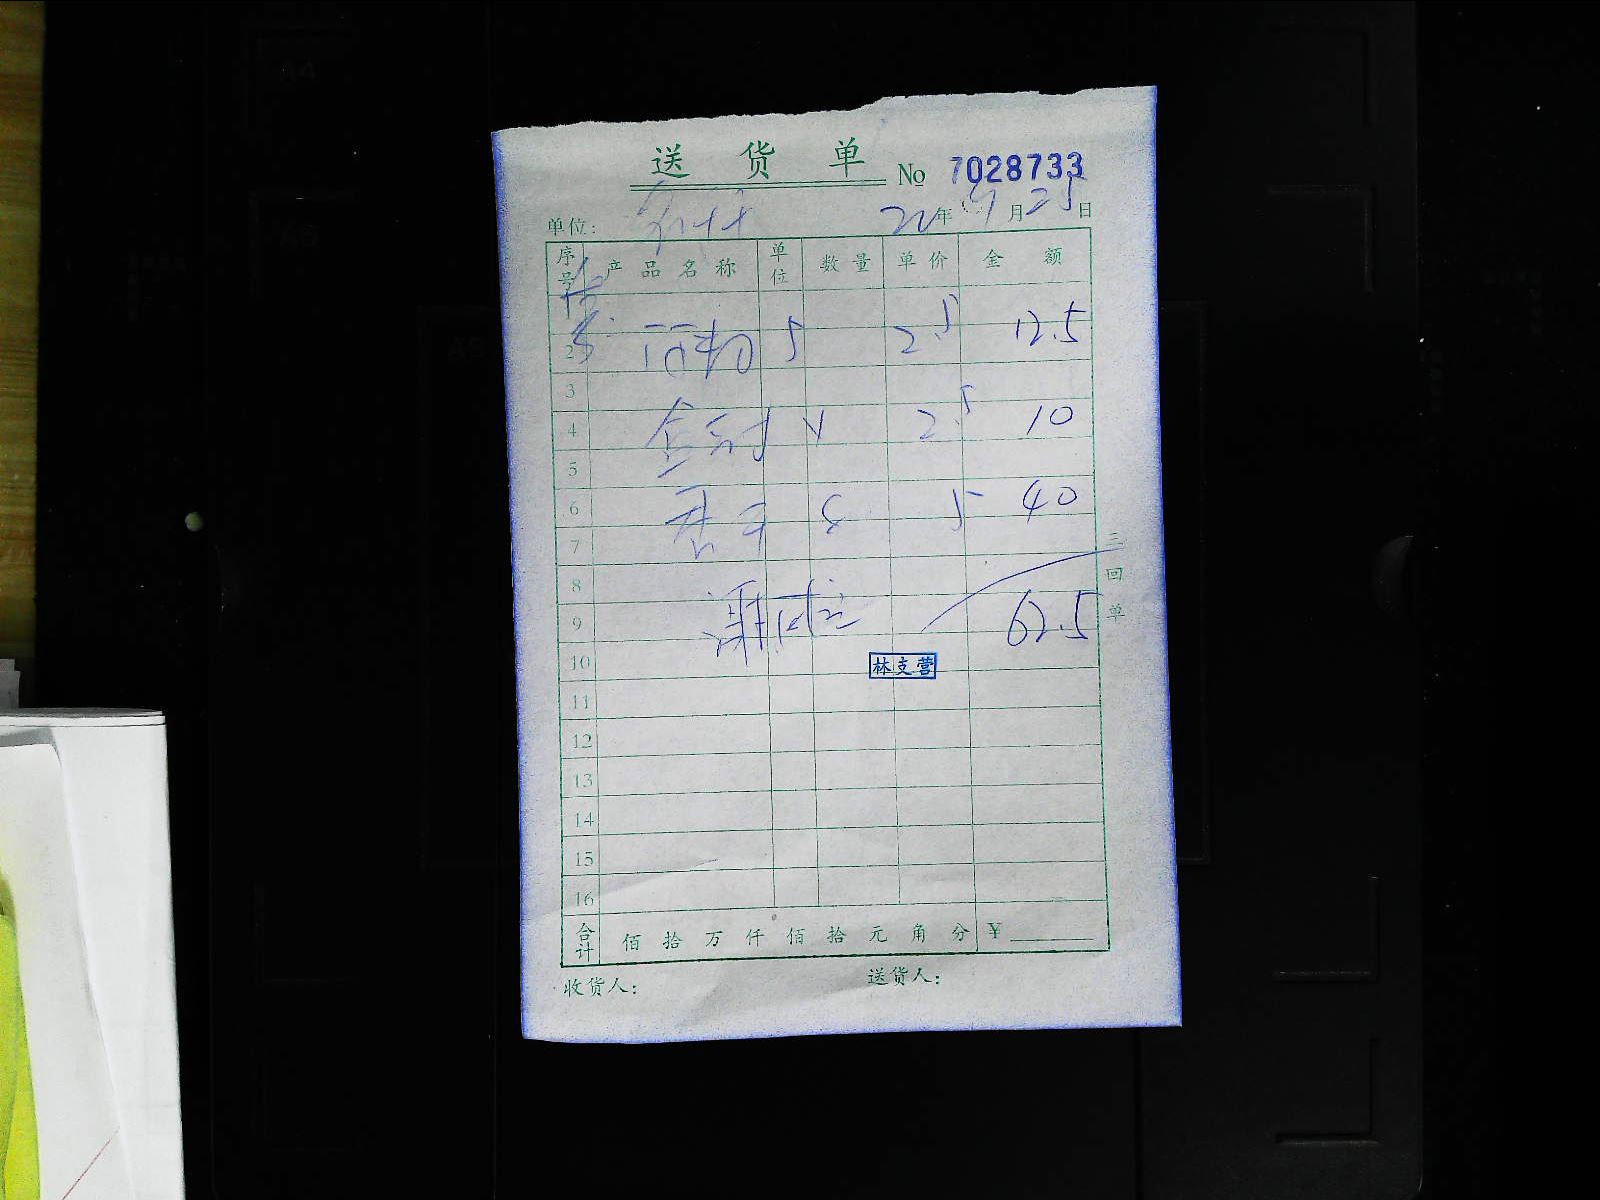 送货单 No 7028733
单位: 20年9月25日
序号 产品名称 单位 数量 单价 金额
1
2 5 2.5 12.5
3
4 2.5 10
5
6 8 5 40
7
三回单
8
9 62.5
10 林支营
11
12
13
14
15
16
合计 佰 拾 万 仟 佰 拾 元 角 分 ¥
收货人: 送货人: